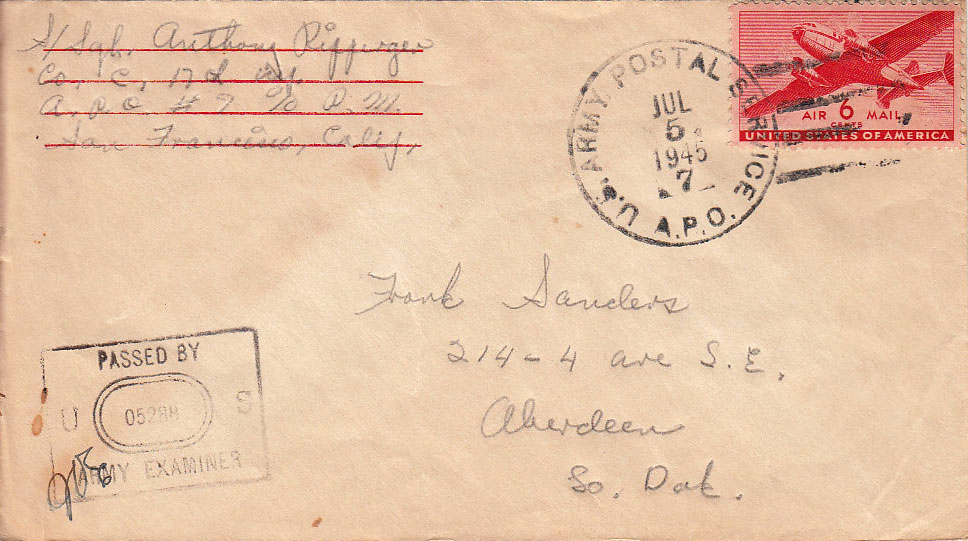 S/Sgt. Anthony Ripperger
Co. C, 17th Inf.
A.P.O. # 7 % P.M.
San Francisco, Calif.
U.S. ARMY POSTAL SERVICE
JUL
5
1945
7
A.P.O.
AIR 6 MAIL
CENTS
UNITED STATES OF AMERICA
Frank Sanders
214-4 ave S.E.
Aberdeen
So. Dak.
PASSED BY
U 05288 S
ARMY EXAMINER